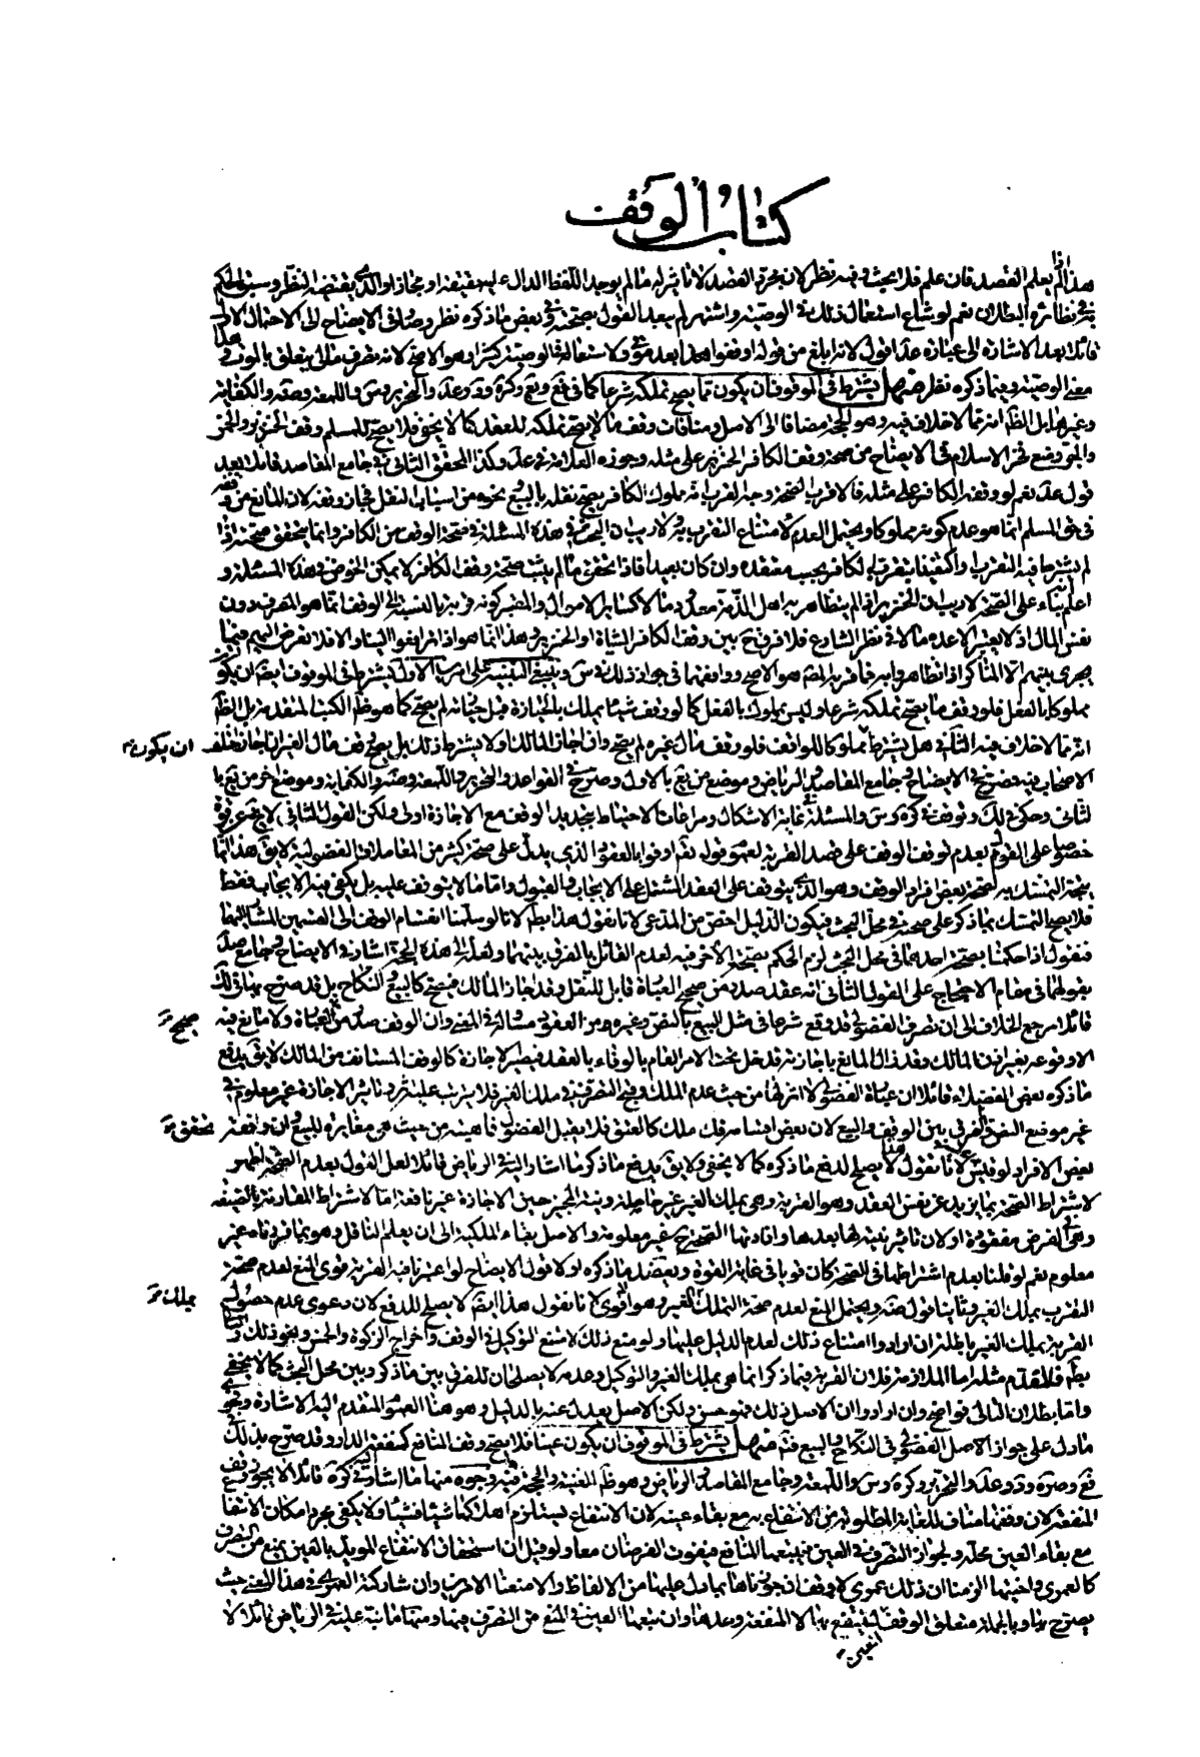 كتاب الوقف
هذا اذا لم يعلم القصد فان علم فلا بحث وفيه نظر لان مجرد القصد لا تاثير له ما لم يوجد اللفظ الدال عليه حقيقة او مجازا والذي يقتضيه النظر وسبق الحكم
في نظائره البطلان نعم لو شاع استعمال ذلك في الوصية واشتهر لم يبعد القول بصحته وفي بعض ما ذكره نظر وصار في الايضاح الى الاحتمال الاول
قائلا بعد الاشارة الى عبارة عد اقول لانه ابلغ من قوله اوقفوا هذا بعد موتي ولاستعماله في الوصية كثيرا وهو الاصح لانه تصرف مالي يتعلق بالموت وهذا
معنى الوصية وفيما ذكره نظر منهل يشترط في الموقوف ان يكون مما يصح تملكه شرعا كما في يع وفع وكرة ود وعد والتحرير وس واللمعة وضه والكفاية
وغيرها بل الظ انه مما لا خلاف فيه وهو الحجة مضافا الى الاصل ومنافات وقف ما لا يصح تملكه للعقد كما لا يخفى فلا يصح للمسلم وقف الخنزير والخمر
فخر الاسلام في الايضاح من صحة وقف الكافر الخنزير على مثله وجوزه العلامة في عد وكذا المحقق الثاني في جامع المقاصد قائلا بعد
قول عد نعم لو وقفه الكافر على مثله فالاقرب الصحة وجه القرب انه مملوك الكافر يصح نقله بالبيع ونحوه من اسباب النقل فجاز وقفه لان المانع من وقفه
في حق المسلم انما هو عدم كونه مملوكا ويحتمل العدم لامتناع التقرب به لا ريب ان البحث في هذه المسئلة في صحة الوقف من الكافر وانما يتحقق صحته اذا
لم يشترط فيه التقرب او اكتفينا بتقرب الكافر بحسب معتقده وان كان بعيدا فاذا تحقق ما لم يثبت صحة وقف الكافر لا يمكن الخوض في هذه المسئلة و
اعلم بناء على الصحة لا ريب ان الخنزير اذا لم يتظاهر به اهل الذمة معدود مالا كسائر الاموال والمعتبر كونه قربة بالنسبة الى الوقف انما هو الصرف دون
نفس المال اذ لا يعتبر الا عده مالا في نظر الشارع فلا فرق ح بين وقف الكافر الشاة او الخنزير وهذا انما هو اذا ترافعوا الينا والا فلا نعرض اليهم فيما
يجرى بينهم الا المناكر اذا تظاهروا به فما قربه المصنف هو الاصح ووافقهما في جواز ذلك في س وينبغي التنبيه على امور الاول يشترط في الموقوف ايضا ان يكون
مملوكا بالفعل فلو وقف ما يصح تملكه شرعا وليس بمملوك بالفعل كما لو وقف شيئا يملك بالحيازة قبل حيازته لم يصح كما هو ظ الكتب المتقدمة بل الظ
انه مما لا خلاف فيه الثاني هل يشترط ان يكون مملوكا للواقف فلو وقف مال غيره لم يصح وان اجاز المالك او لا يشترط ذلك بل يصح وقف مال الغير ان اجاز اختلف
الاصحاب فيه فصرح في الايضاح وجامع المقاصد والرياض وموضع من يع بالاول وصرح في القواعد والتحرير واللمعة وضه والكفاية وموضع اخر من يع با
لثاني وحكي ذلك وتوقف في كرة وس والمسئلة في غاية الاشكال ومراعات الاحتياط بتجديد الوقف مع الاجازة اولى ولكن القول الثاني لا يخ عن قوة
خصوصا على القول بعدم توقف الوقف على قصد القربة لعموم قوله تعم اوفوا بالعقود الذي يدل على صحة كثير من المعاملات الفضولية لا يق هذا انما
يتجه التمسك به لصحة بعض افراد الوقف وهو الذي يتوقف على العقد المشتمل على الايجاب والقبول واما ما لا يتوقف عليه بل يكفي فيه الايجاب فقط
فلا يصح التمسك بما ذكر على صحته في محل البحث فيكون الدليل اخص من المدعى لانا نقول هذا باطل لانا لو سلمنا انقسام الوقف الى القسمين المشار اليهما
فنقول اذا حكمنا بصحة احدهما في محل البحث لزم الحكم بصحة الاخر فيه لعدم القائل بالفرق بينهما ولعل الى هذه الحجة اشار في الايضاح وجامع صد
بقولهما في مقام الاحتجاج على القول الثاني انه عقد صدر من صحيح العبارة قابل للنقل وقد اجاز المالك فيصح كالبيع والنكاح بل قد صرح بما في ذلك
قائلا مرجع الخلاف الى ان تصرف الفضولي قد وقع شرعا في مثل البيع بالنص وغيره من العقود مشاركة في المعنى وان الوقف صدر من صحيح العبارة ولا مانع فيه
الا وقوعه بغير اذن المالك وقد زال المانع باجازته فدخل تحت الامر العام بالوفاء بالعقد فيصير الاجازة كالوقف المستانف من المالك لا يق يدفع
ما ذكره بعض الفضلاء قائلا ان عبارة الفضولي لا اثر لها من حيث عدم الملك وقبح التصرف في ملك الغير فلا يترتب عليه اثره وتاثير الاجازة غير معلوم في
غير موضع النص والفرق بين الوقف والبيع لان بعض اقسامه فك ملك كالعتق فلا يقبل الفضولي فماهيته من حيث هي مغايرة للبيع وان وافقته تحقق في
بعض الافراد لو قيس عليه لانا نقول هذا لا يصلح لدفع ما ذكره كما لا يخفى ولا يق يدفع ما ذكر ما اشار اليه في الرياض قائلا لعل القول بعدم الصحة اظهر
لاشتراط الصحة بما يزيد عن نفس العقد وهو القربة وهي بمليك الغير غير حاصلة ونية المجيز حين الاجازة غير نافعة اما لاشتراط المقارنة بالصيغة
وهي في الفرض مفقودة او لان تاثير نيته لها بعدها وافادتها الصحة ح غير معلومة والاصل بقاء الملكية الى ان يعلم الناقل وهو بما قررناه غير
معلوم نعم لو قلنا بعدم اشتراطها في الصحة كان قويا في غاية القوة ويعضد ما ذكره اولا قول الايضاح لو اعتبرنا فيه القربة قوي المنع لعدم صحة
التقرب بملك الغير وثانيا قول ضه ويحتمل المنع لعدم صحة التملك بملك الغير وهو اقوى لانا نقول هذا ايضا لا يصلح للدفع لان دعوى عدم حصول
القربة بمليك الغير باطلة ان ارادوا امتناع ذلك لعدم الدليل عليها ولو منع ذلك لامتنع التوكيل في الوقف واخراج الزكوة والخمس ونحو ذلك والتالي
بط فالمقدم مثله اما الملازمة فلان القربة فيما ذكر انما هي بمليك الغير والتوكيل وعدمه لا يصلحان للفرق بين ما ذكر وبين محل البحث كما لا يخفى
واما بطلان التالي فواضح وان ارادوا ان الاصل ذلك فهو حسن ولكن الاصل يعدل عنه بالدليل وهو هنا العموم المتقدم اليه الاشارة ونحو
ما دل على جواز الاصل الفضولي في النكاح والبيع فتم منهل يشترط في الموقوف ان يكون عينا فلا يصح وقف المنافع كمنفعة الدار وقد صرح بذلك
في فع وصرة ود وعد والتحرير وكرة وس واللمعة وجامع المقاصد والرياض وهو ظ الغنية والحجة فيه وجوه منها ما اشار اليه في كرة قائلا لا يجوز وقف
المنفعة لان وقفها مناف للغاية المطلوبة من الانتفاع به مع بقاء عينه لان الانتفاع يستلزم اهلاكها شيئا فشيئا ولا يكفي مجرد امكان الانتفا
مع بقاء العين محله ولجواز التصرف في العين فيتبعها المنافع فيفوت الغرضان معا ولو قيل ان استحقاق الانتفاع المؤبد بالعين يمنع من التصرف
كالعمرى واختيها الزمنا ان ذلك عمرى لا وقف ان جوزناها بما دل عليهما من الالفاظ والا منعنا الامرين وان شاركته العمرى في هذا المعنى حيث
يصرح بها وبالجملة متعلق الوقف العين ليتفرع بها لا المنفعة وحدها وان تبعها العين في المنع من التصرف فيها ومنها ما نبه عليه في الرياض قائلا لا
ان يكون
صحيح
تحقق
بملك
العين